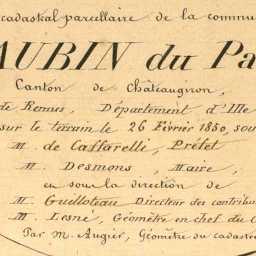 cadastral parcellaire de la commu
AUBIN du Pa
Canton de Châteaugiron,
de Rennes, Département d'Ille
sur le terrain le 26 Février 1850, sou
M. de Caffarelli, Préfet
M. Desmons, Maire,
en sous la direction de
M. Guilloteau Directeur des contribut
M. Lesné, Géomètre en chef du C
Par M. Augier, Géomètre du cadastre